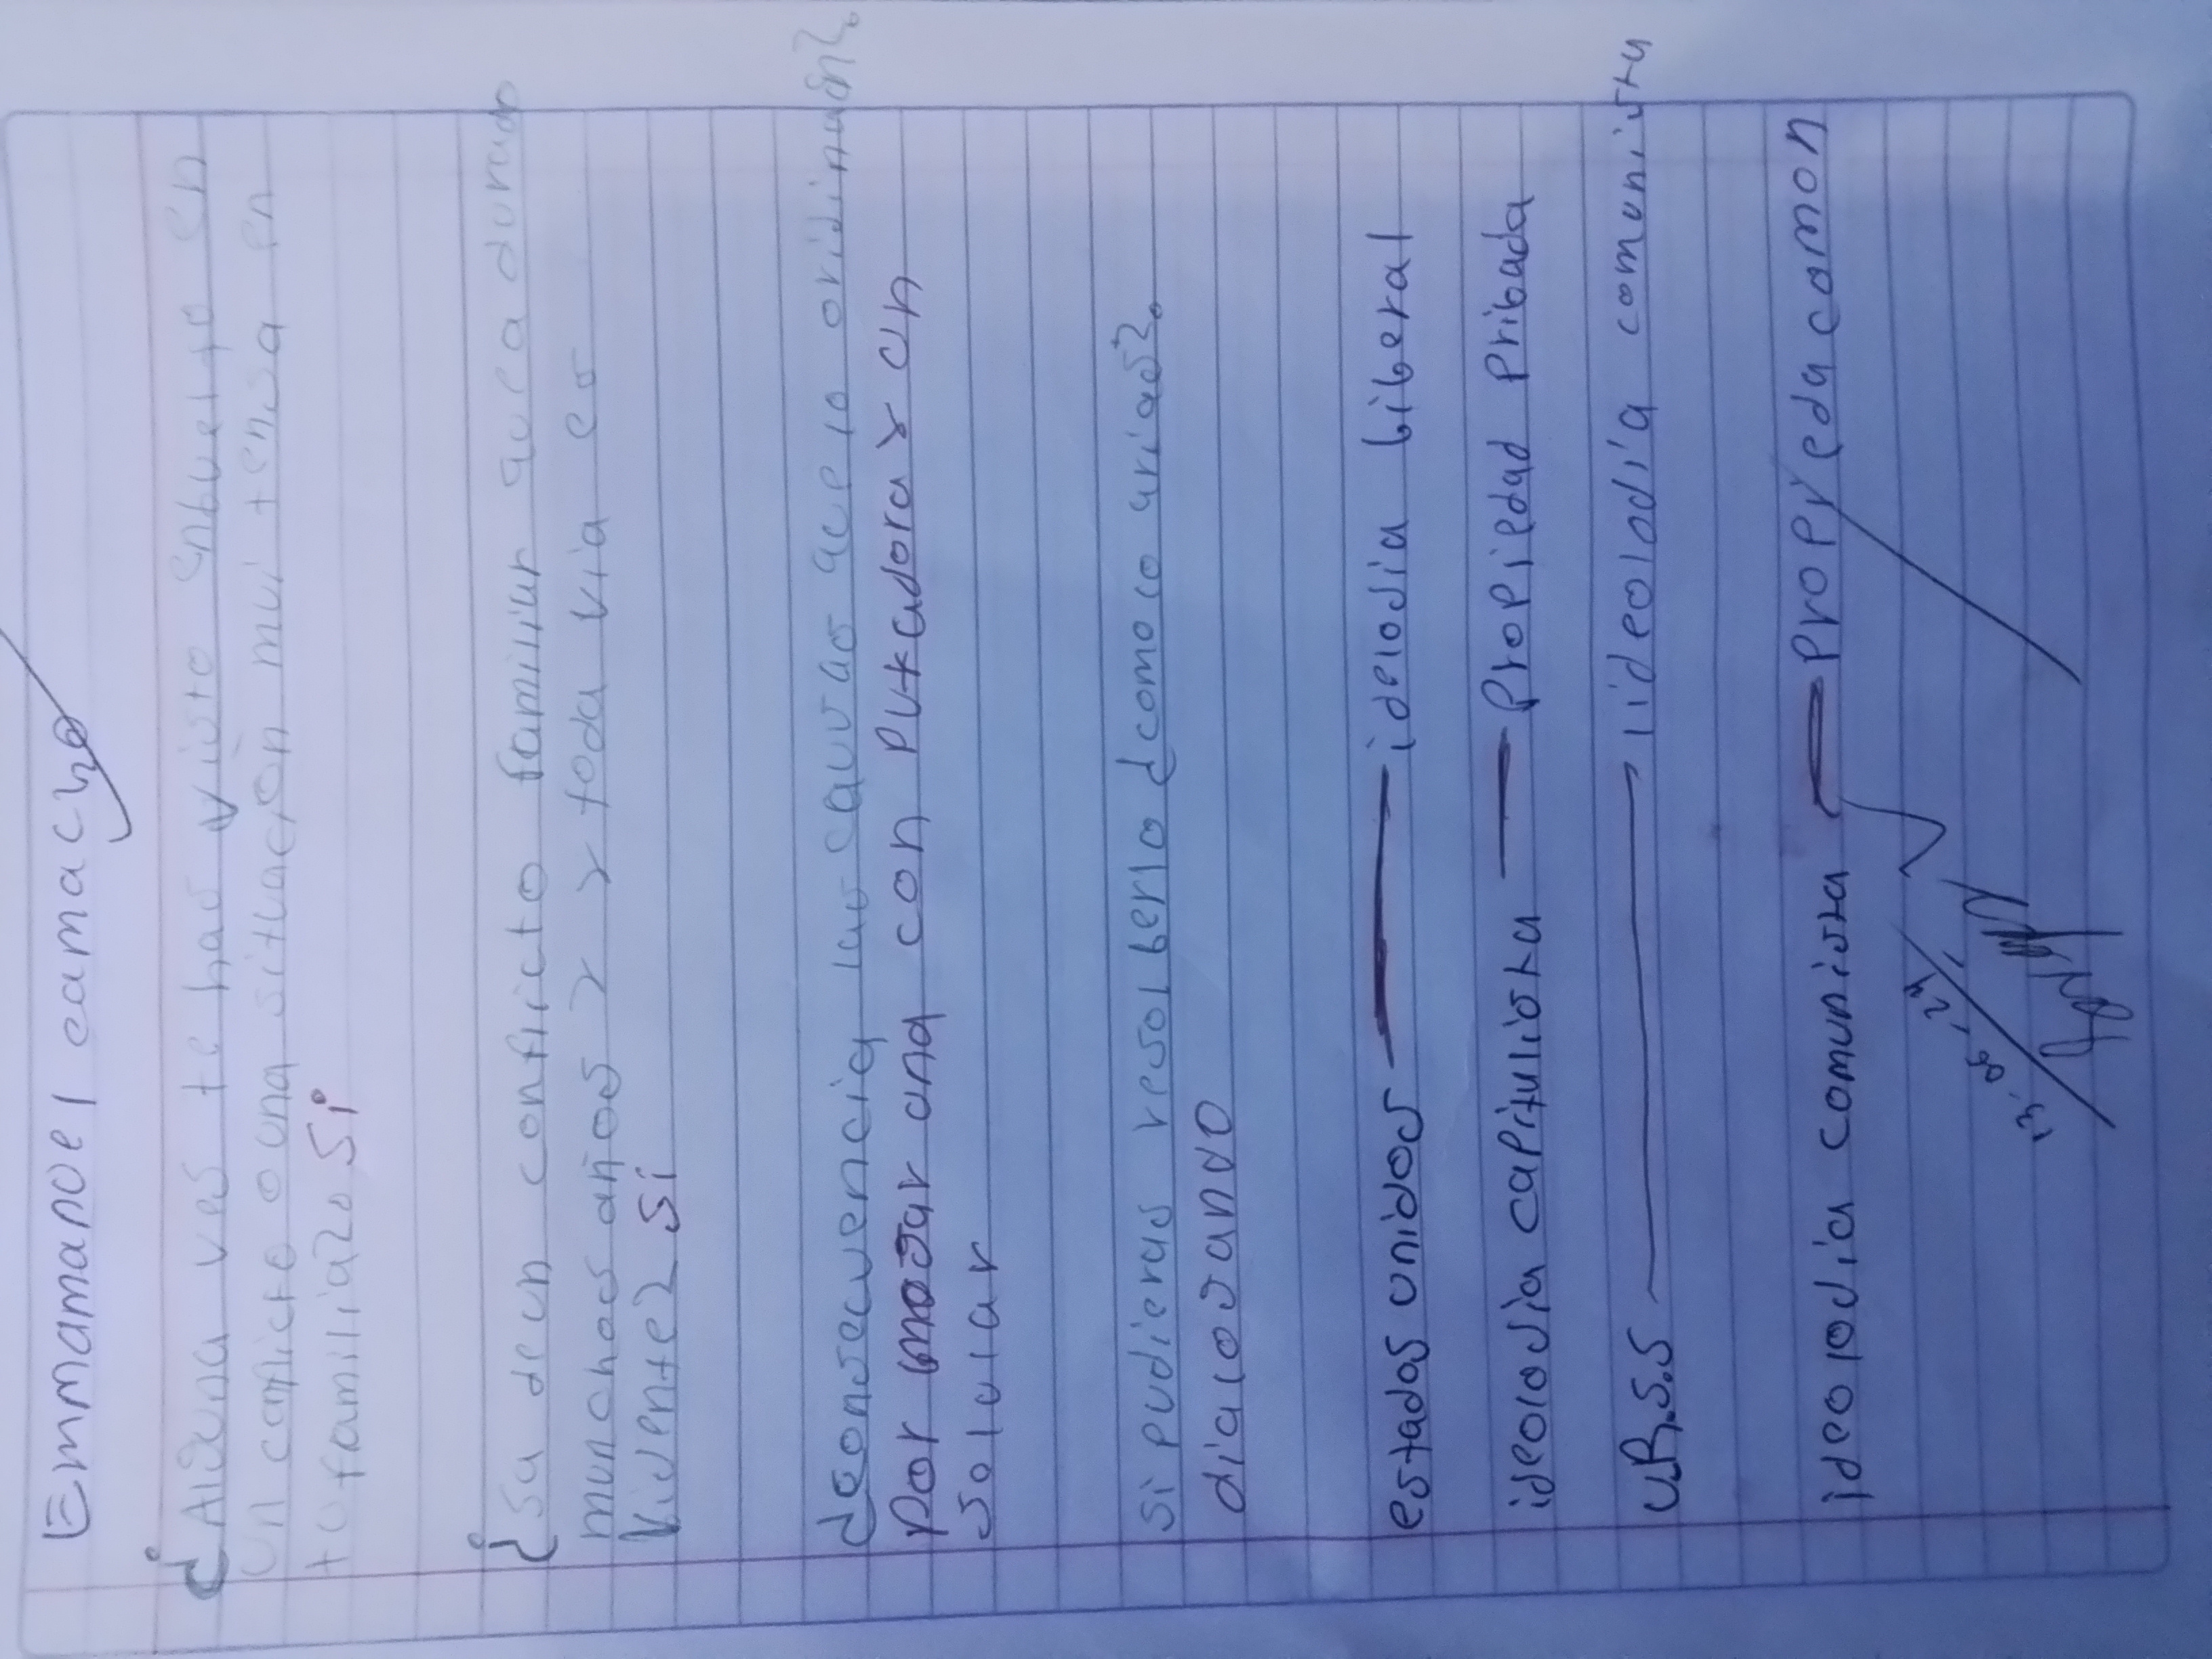 Emmanoel camacho
¿Alguna ves te has visto enbuelto en
un conflicto o una situación mui tensa en
tu familia? Si
¿Sa de un conflicto familiar que a durado
munchos años y y toda via es
vijente? Si
¿consecuencia las causas que lo originan?
Por una con Putadora y un
solular
si pudieras resolberlo ¿como lo arias?
dialogando
estados unidos — idelogia liberal
ideologia capitulista — Propiedad Pribada
U.R.S.S — iideologia comunista
ideologia comunista — Propyeda comon